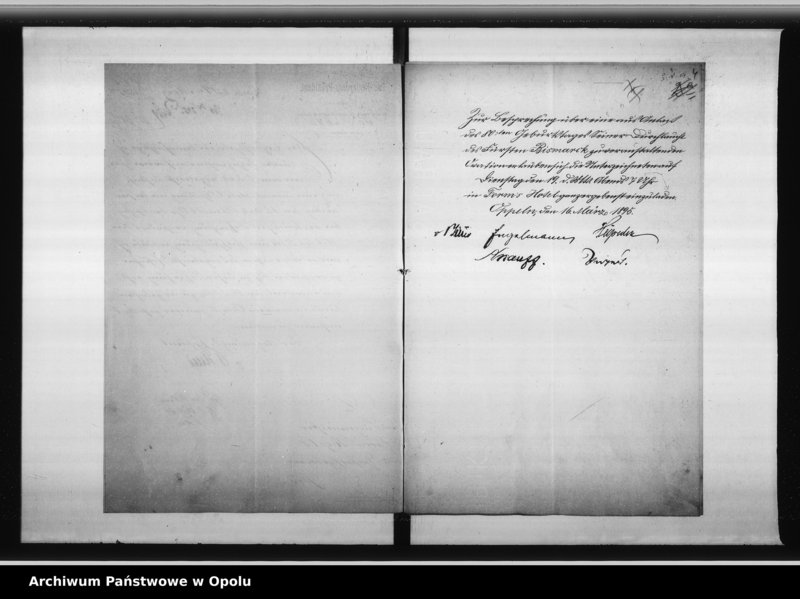 Zur Besprechung über eine aus Anlaß
des 80ten Geburtstages Seiner Durchlaucht
des Fürsten Bismarck zu veranstaltenden
Ovation erlauben sich die Unterzeichneten auf
Dienstag den 19. d. Mts. Abends 7 Uhr
in Form's Hotel ganz ergebenst einzuladen.
Oppeln, den 16. März 1895.
Engelmann
Archiwum Państwowe w Opolu